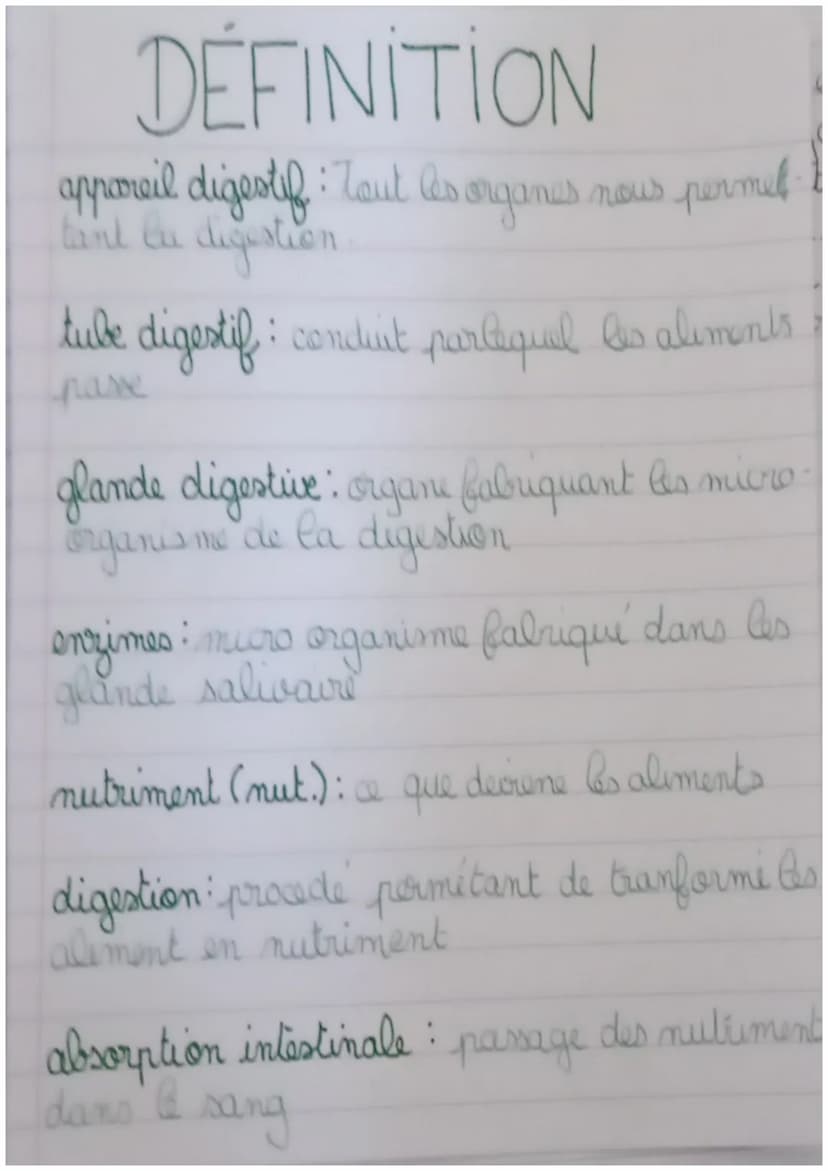 DÉFINITION
appareil digestif : Tout les organes nous permet-
tant la digestion.
tube digestif : conduit parlequel les aliments
passe
glande digestive : organe fabriquant les micro-
organisme de la digestion
enzimes : micro organisme fabriqué dans les
glande salivaire
nutriment (nut.) : ce que devienne les aliments
digestion : procédé permétant de tranformé les
aliment en nutriment
absorption intestinale : passage des nutriment
dans le sang